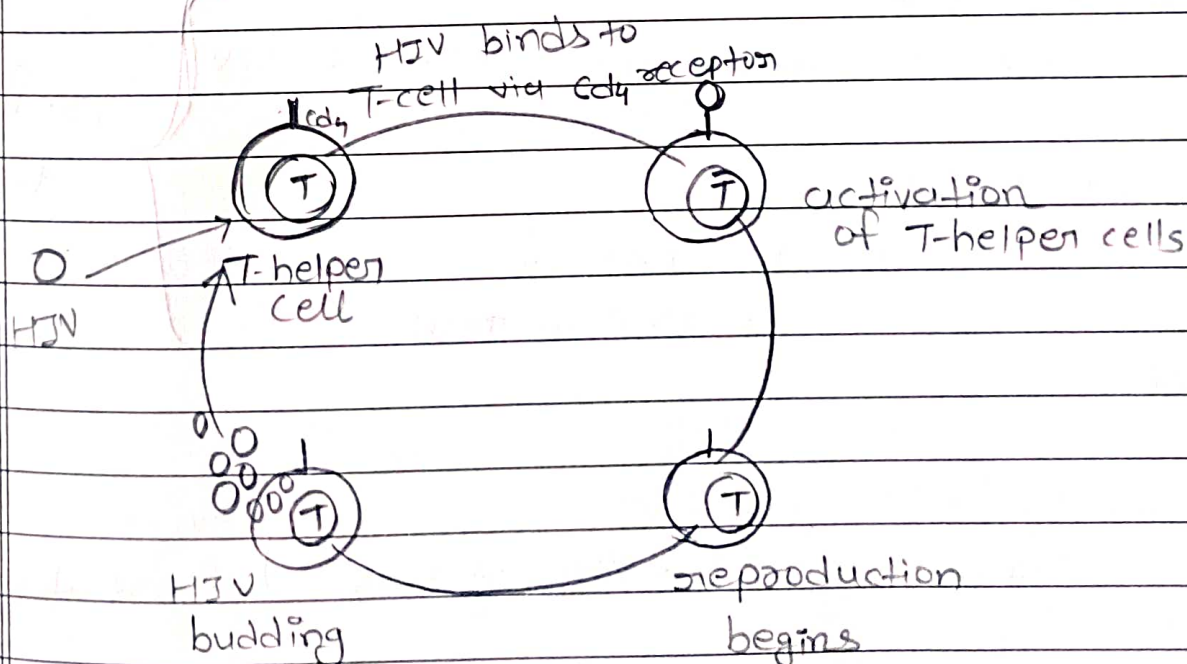 HIV binds to
T-cell via Cd4 receptor
Cd4
T
T
activation
of T-helper cells
HIV
T-helper
cell
T
T
HIV
budding
reproduction
begins